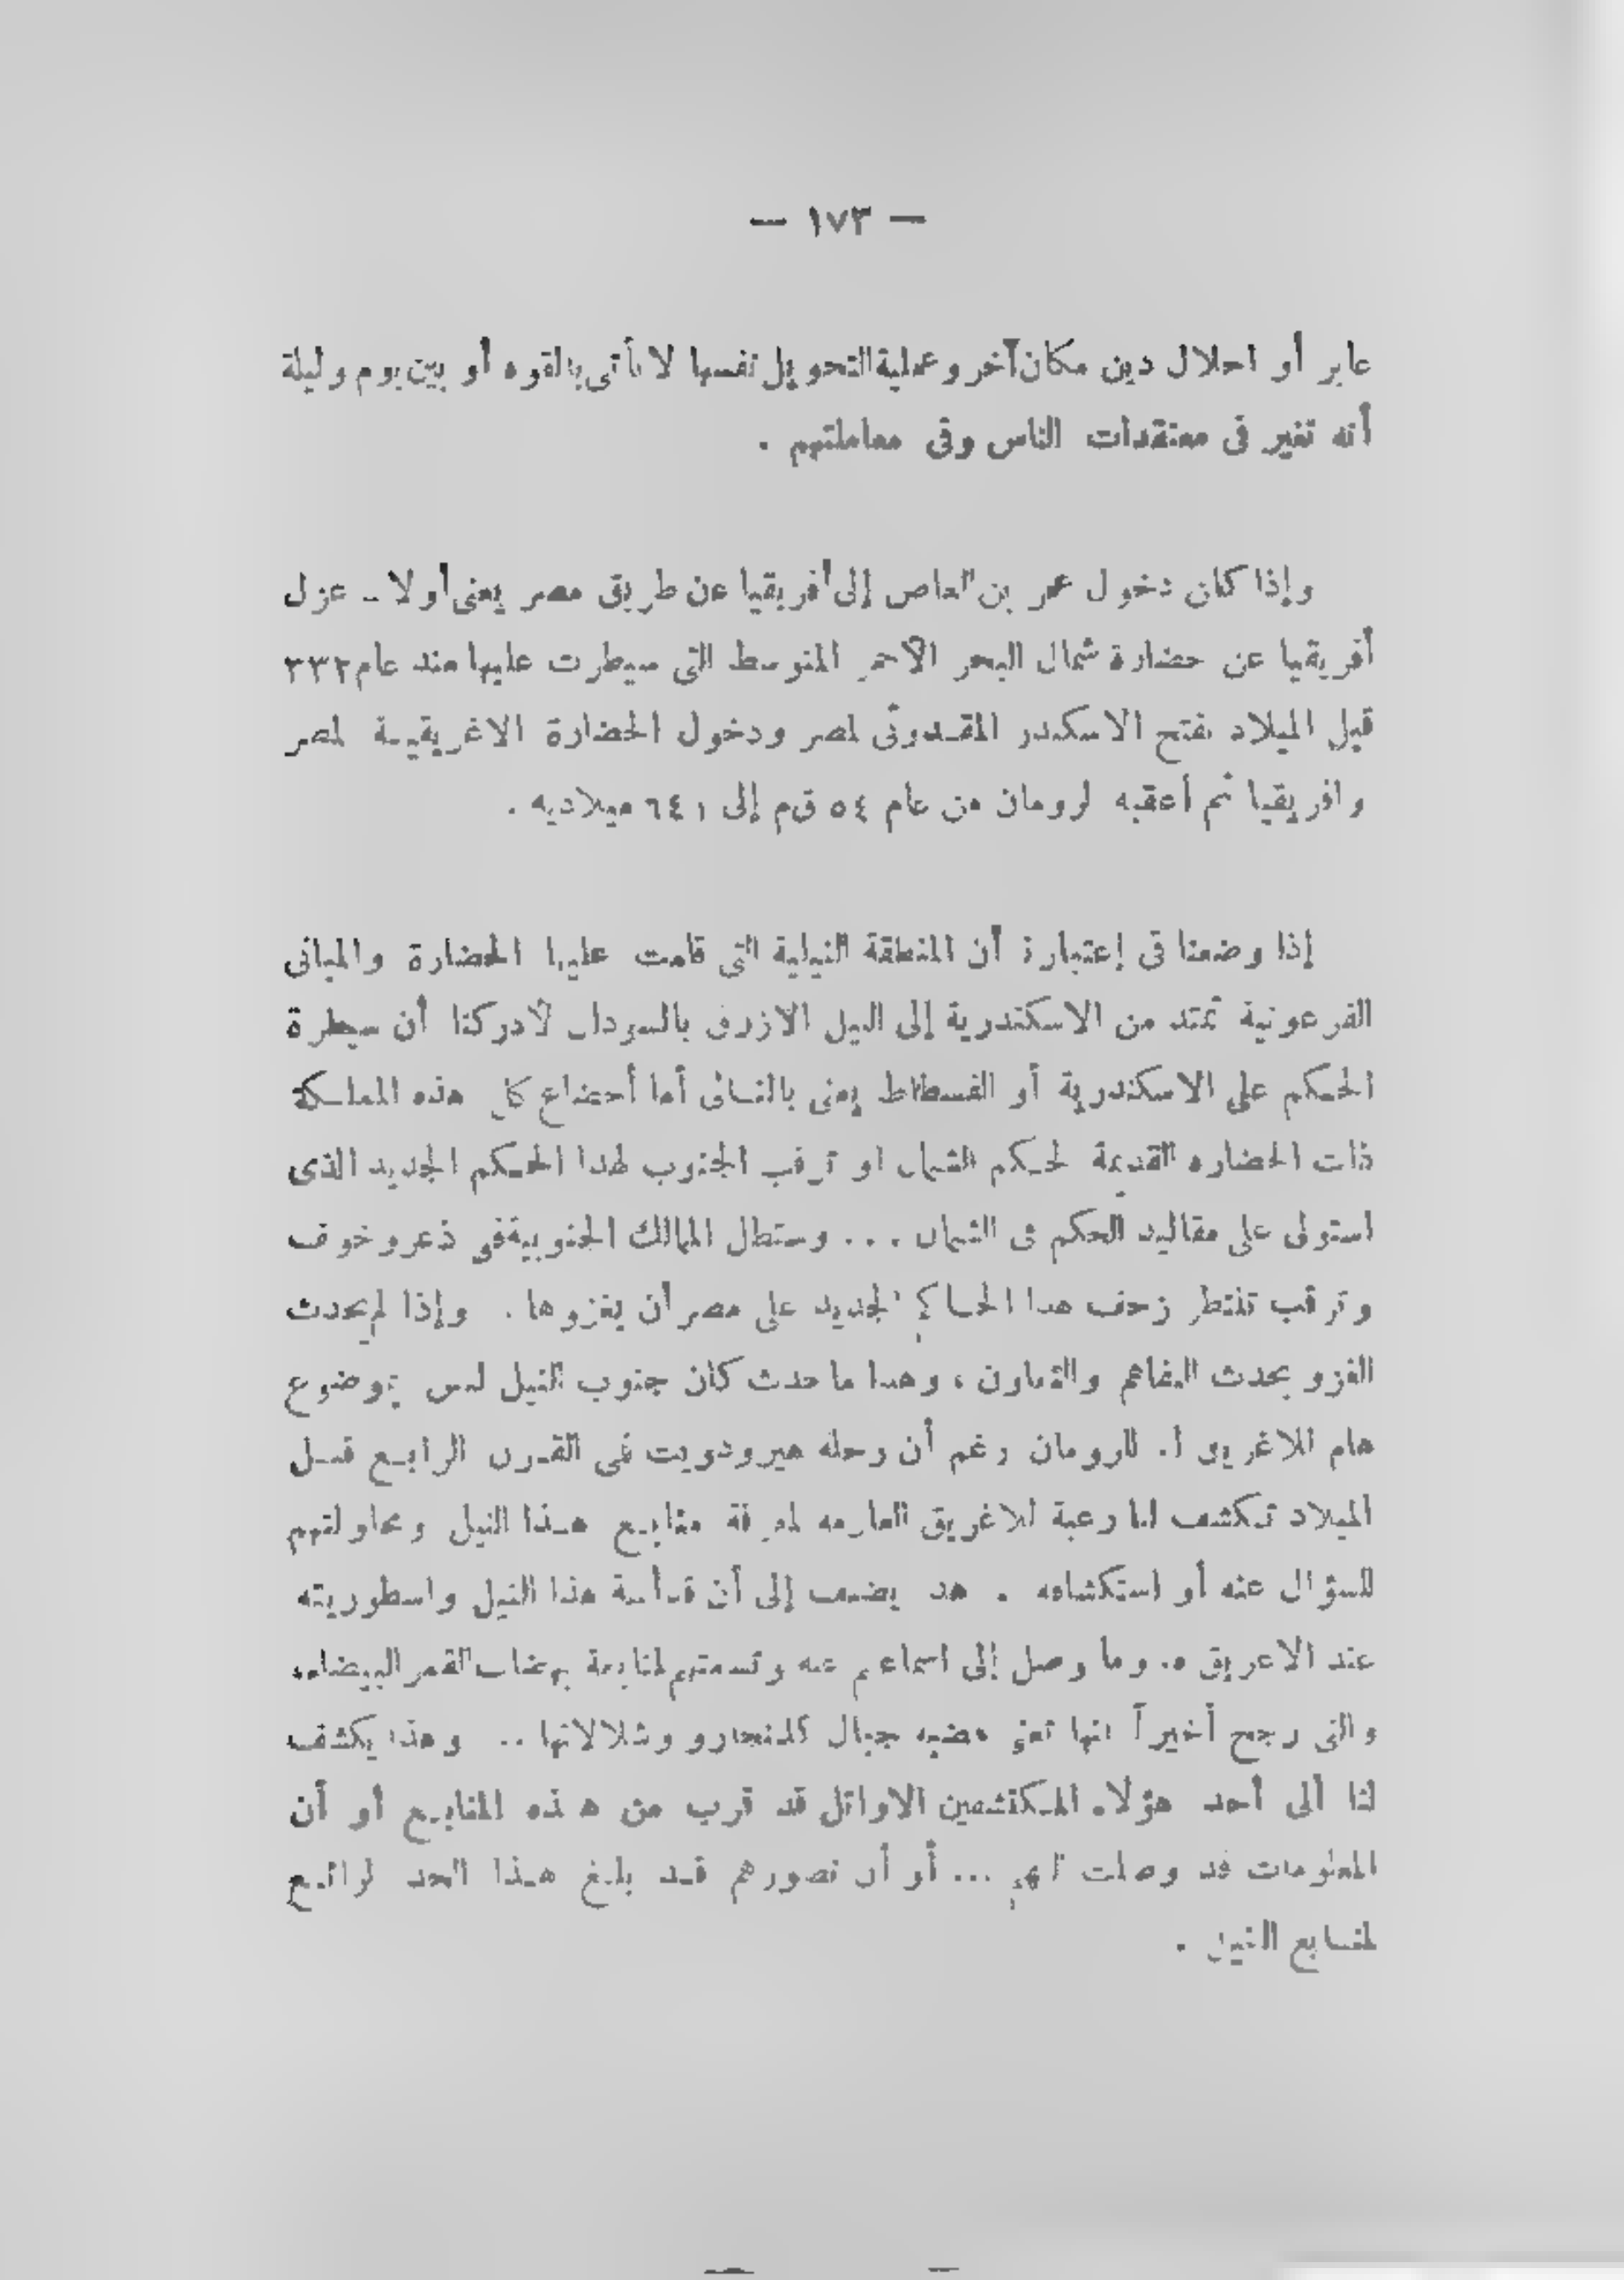 — ١٧٣ —
عابر أو احلال دين مكان آخر وعملية التحويل نفسها لا تأتى بالقوه أو بين يوم وليلة
أنه تغير فى معتقدات الناس وفى معاملتهم .
وإذا كان دخول عمر بن العاص إلى أفريقيا عن طريق مصر يعنى أولا ـ عزل
أفريقيا عن حضارة شمال البحر الأحمر المتوسط التى سيطرت عليها منذ عام ٣٣٢
قبل الميلاد بفتح الاسكندر المقدونى لمصر ودخول الحضارة الاغريقية لمصر
وافريقيا ثم أعقبه لرومان من عام ٥٤ ق م إلى ٦٤١ ميلاديه .
إذا وضعنا فى إعتبارنا أن المنطقة النيلية التى قامت عليها الحضارة والمبانى
الفرعونية تمتد من الاسكندرية إلى النيل الازرق بالسودان لأدركنا أن سيطرة
الحكم على الاسكندرية أو الفسطاط يعنى بالتالى أما أخضاع كل هذه المملكة
ذات الحضاره القديمة لحكم الشمال او ترقب الجنوب لهذا الحكم الجديد الذى
استولى على مقاليد الحكم فى الشمال . . . وستظل الممالك الجنوبية فى ذعر وخوف
وترقب تنتظر زحف هذا الحاكم الجديد على مصر أن يغزوها . وإذا لم يحدث
الغزو يحدث التفاهم والتعاون ، وهذا ما حدث كان جنوب النيل ليس بموضوع
هام للاغريق أ. للرومان رغم أن رحله هيرودويت فى القرن الرابع قبل
الميلاد تكشف لنا رغبة للاغريق العارمه لمعرفة منابع هذا النيل ومحاولتهم
للسؤال عنه أو استكشافه . هذ يضيف إلى أن قدأسة هذا النيل واسطوريته
عند الاغريق وما وصل إلى اسماعهم عنه وتسمتهم لمنابعة بهضاب القمر البيضاء
والتى رجح أخيراً انها تعنى هضبه جبال كلمنجارو وشلالاتها .. وهذا يكشف
لنا ألى أحد هؤلاء المكتشفين الاوائل قد قرب من هذه المنابع أو أن
المعلومات قد وصلت اليهم ... أو أن تصورهم قد بلغ هذا الحد لرائع
لمنابع النيل .